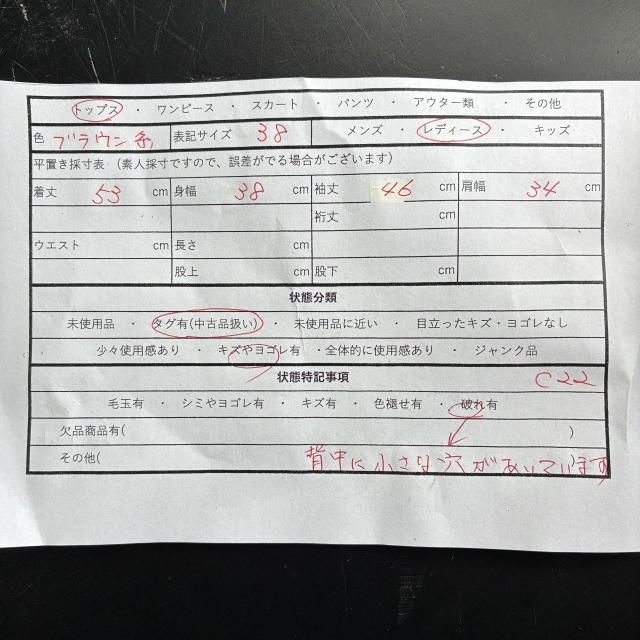 トップス ・ ワンピース ・ スカート ・ パンツ ・ アウター類 ・ その他
色 ブラウン系 表記サイズ 38 メンズ ・ レディース ・ キッズ
平置き採寸表 （素人採寸ですので、誤差がでる場合がございます）
着丈 53 cm 身幅 38 cm 袖丈 46 cm 肩幅 34 cm
裄丈 cm
ウエスト cm 長さ cm
股上 cm 股下 cm
状態分類
未使用品 ・ タグ有(中古品扱い) ・ 未使用品に近い ・ 目立ったキズ・ヨゴレなし
少々使用感あり ・ キズやヨゴレ有 ・全体的に使用感あり ・ ジャンク品
状態特記事項 C22
毛玉有 ・ シミやヨゴレ有 ・ キズ有 ・ 色褪せ有 ・ 破れ有
欠品商品有( )
その他( 背中に小さな穴があいています )